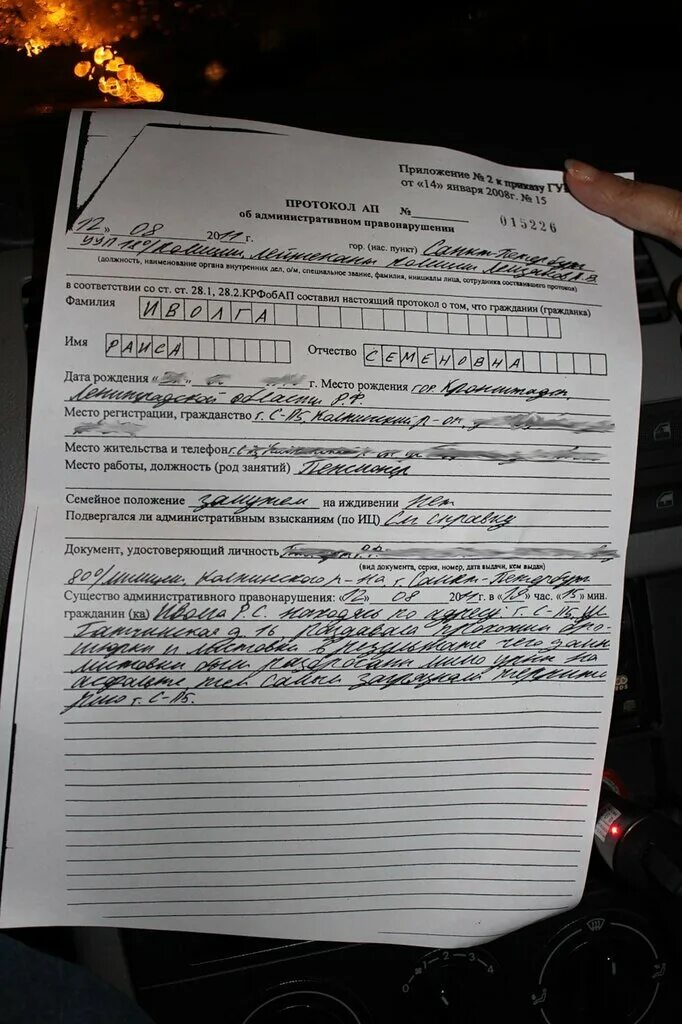 Приложение № 2 к приказу ГУ
от «14» января 2008г. № 15
ПРОТОКОЛ АП №
015226
об административном правонарушении
12 » 08 2011 г. гор. (нас. пункт) Санкт-Петербург
УУП 120/милиции, лейтенант милиции
(должность, наименование органа внутренних дел, о/м, специальное звание, фамилия, инициалы лица, сотрудника составившего протокол)
в соответствии со ст. ст. 28.1, 28.2.КРФобАП составил настоящий протокол о том, что гражданин (гражданка)
Фамилия ИВОЛГА
Имя РАИСА Отчество СЕМЕНОВНА
Дата рождения « » г. Место рождения гор. Кронштадт
Ленинградской области Р.Ф.
Место регистрации, гражданство г. С-Пб. Колпинский р-он,
Место жительства и телефон г. С-Пб, р-он
Место работы, должность (род занятий) Пенсионер
Семейное положение замужем на иждивении нет
Подвергался ли административным взысканиям (по ИЦ) См справку
Документ, удостоверяющий личность Р.Ф.
(вид документа, серия, номер, дата выдачи, кем выдан)
80 о/милиции, Колпинского р-на г. Санкт-Петербург
Существо административного правонарушения: 12 08 2011 г. в « » час. «15» мин.
гражданин (ка) Иволга Р.С. находясь по адресу г. С-Пб. ул.
д. 16 раздавала прохожим бро-
шюрки и листовки в результате чего данн
листовки были разбросаны мимо урны на
асфальте тем самым загрязнили террити
рию г. С-Пб.